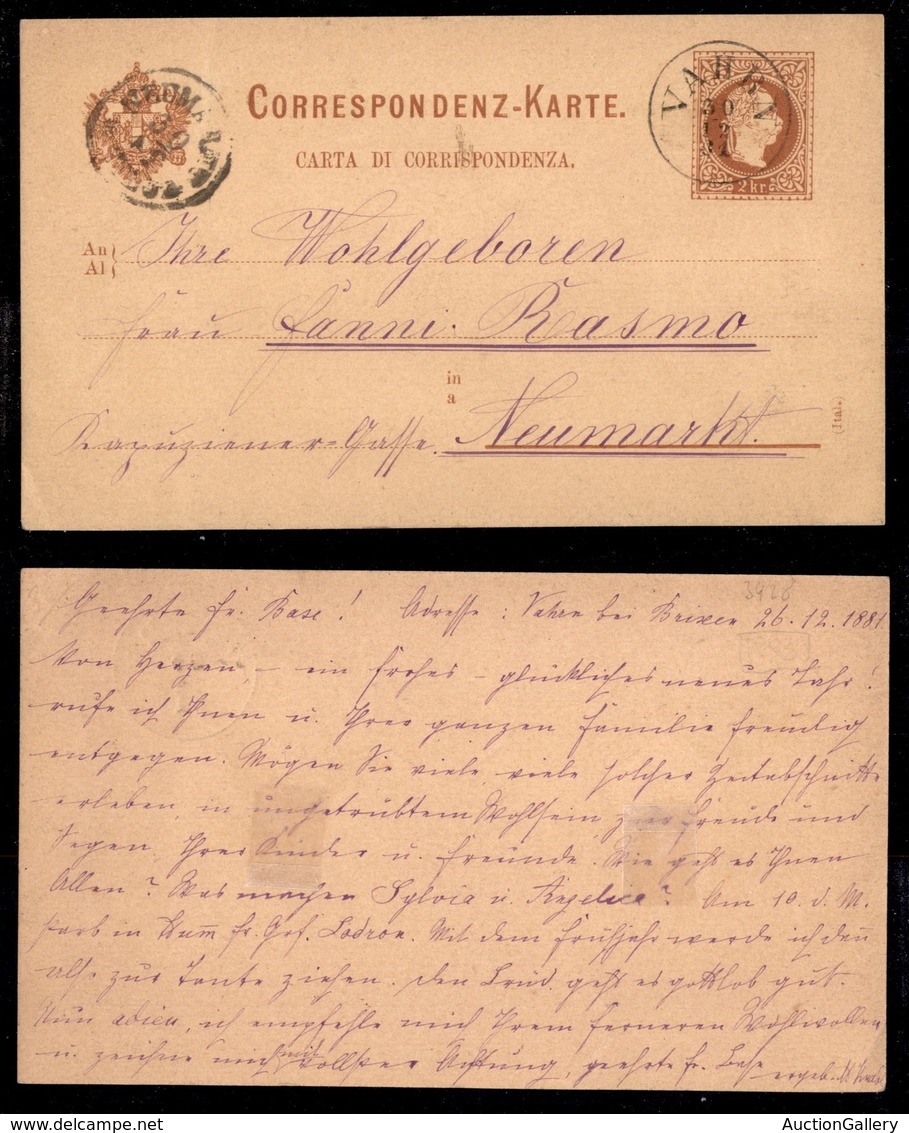 CORRESPONDENZ-KARTE.
CARTA DI CORRISPONDENZA.
VAHRN
30
12
81
2 kr
An
Al
Ihre Wohlgeboren
Frau Fanni Rasmo
in
a
Kapuziener-Gasse Neumarkt.
(Ital.)
3428
Geehrte Fr. Base! Adresse: Vahrn bei Brixen 26.12.1881
Von Herzen – ein frohes – glückliches neues Jahr!
rufe ich Ihnen u. Ihrer ganzen Familie freudig
entgegen. Mögen Sie viele, viele solcher Zeitabschnitte
erleben, in ungetrübtem Wohlsein, zur Freude und
Segen, Ihrer Kinder u. Freunde. Wie geht es Ihnen
Allen? Was machen Sylvia u. Angelica? Am 10. d. M.
starb in Fr. Grf. Lodron. Mit dem Frühjahr werde ich
zur Tante ziehen. geht es gottlob gut.
Nun adieu, ich empfehle mich Ihrem ferneren Wohlwollen
u. zeichne mich mit vollster Achtung, geehrte Fr. Base
ergeb.
AuctionGallery